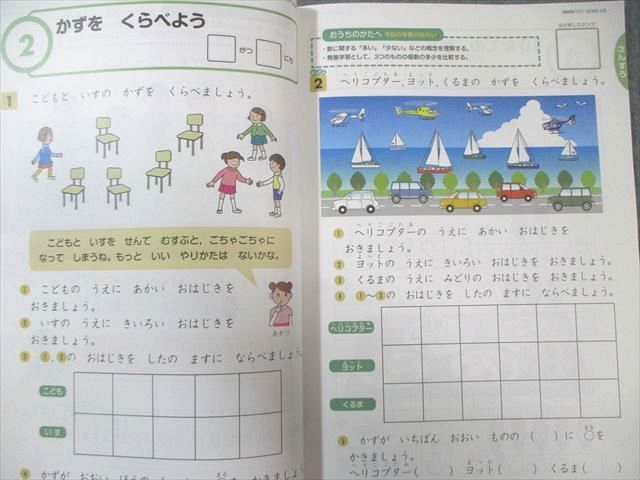 2
かずを くらべよう
がつ
にち
1 こどもと いすの かずを くらべましょう。
こどもと いすを せんで むすぶと、ごちゃごちゃに
なって しまうね。もっと いい やりかたは ないかな。
1 こどもの うえに あかい おはじきを
おきましょう。
2 いすの うえに きいろい おはじきを
おきましょう。
あかり
3 1,2の おはじきを したの ますに ならべましょう。
こども
いす
4 かずが おおい ほうの
おうちのかたへ 今回の学習のねらい
・数に関する「多い」「少ない」などの概念を理解する。
・発展学習として、3つのものの個数の多少を比較する。
はげましスタンプ
さんすう
2 ヘリコプター,ヨット,くるまの かずを くらべましょう。
1 ヘリコプターの うえに あかい おはじきを
おきましょう。
2 ヨットの うえに きいろい おはじきを おきましょう。
3 くるまの うえに みどりの おはじきを おきましょう。
4 1~3の おはじきを したの ますに ならべましょう。
ヘリコプター
ヨット
くるま
5 かずが いちばん おおい ものの ( )に ○を
かきましょう。
ヘリコプター( ) ヨット( ) くるま( )